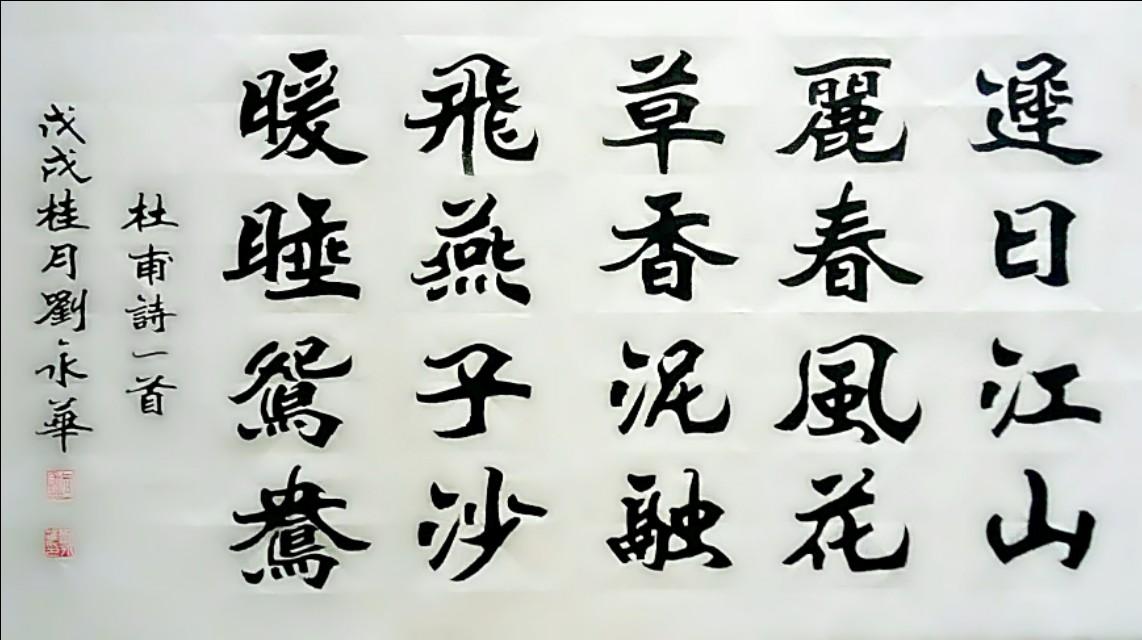 遲日江山
麗春風花
草香泥融
飛燕子沙
暖睡鴛鴦
杜甫詩一首
戊戌桂月劉永華